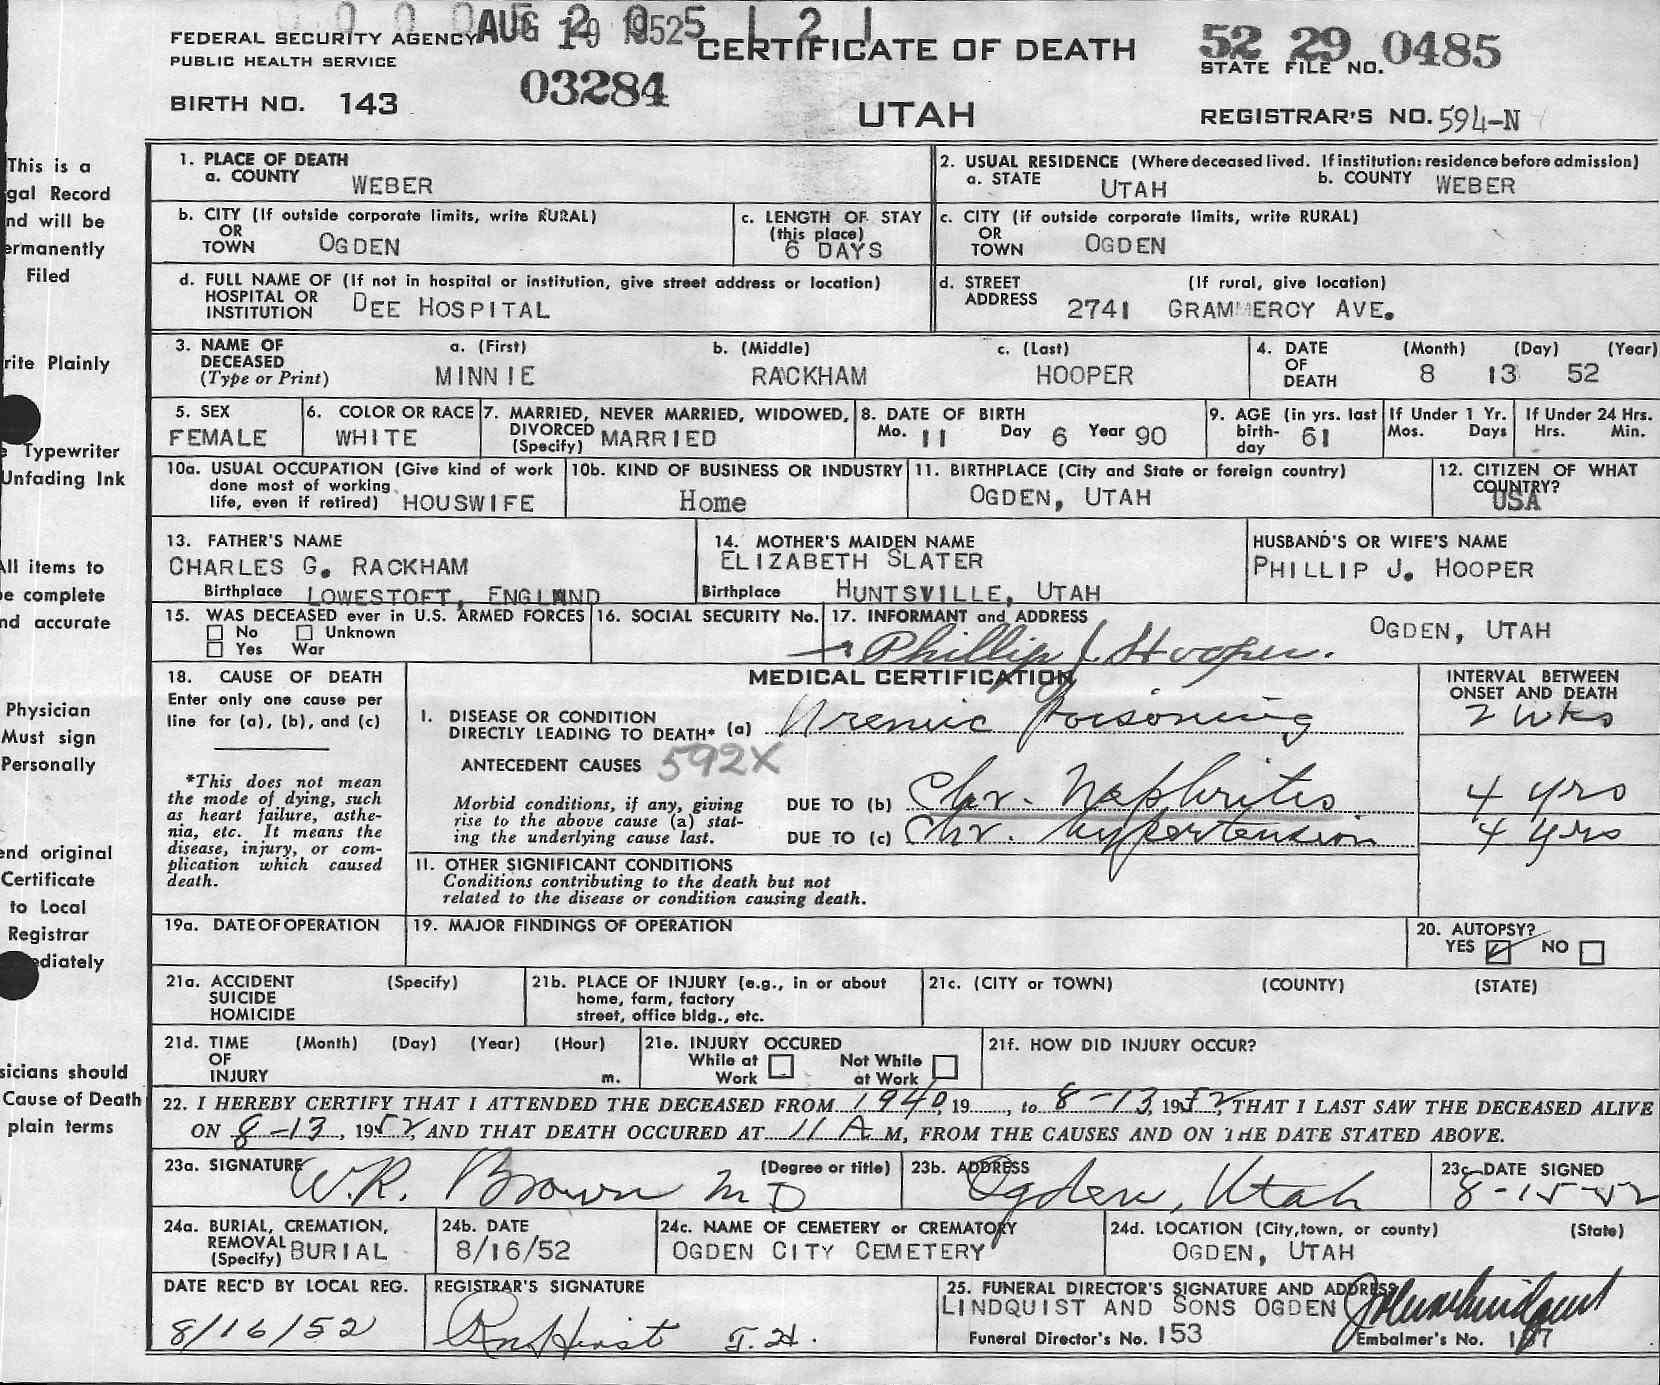 FEDERAL SECURITY AGENCY
PUBLIC HEALTH SERVICE
BIRTH NO. 143
AUG 19 1952
03284
CERTIFICATE OF DEATH
UTAH
52 29 0485
STATE FILE NO.
REGISTRAR'S NO. 594-N
This is a
gal Record
nd will be
ermanently
Filed
rite Plainly
Typewriter
Unfading Ink
All items to
be complete
nd accurate
Physician
Must sign
Personally
end original
Certificate
to Local
Registrar
ediately
sicians should
Cause of Death
plain terms
1. PLACE OF DEATH
a. COUNTY WEBER
2. USUAL RESIDENCE (Where deceased lived. If institution: residence before admission)
a. STATE UTAH b. COUNTY WEBER
b. CITY (If outside corporate limits, write RURAL)
OR
TOWN OGDEN
c. LENGTH OF STAY
(this place)
6 DAYS
c. CITY (if outside corporate limits, write RURAL)
OR
TOWN OGDEN
d. FULL NAME OF (If not in hospital or institution, give street address or location)
HOSPITAL OR
INSTITUTION DEE HOSPITAL
d. STREET (If rural, give location)
ADDRESS 2741 GRAMMERCY AVE.
3. NAME OF DECEASED (Type or Print)
a. (First) b. (Middle) c. (Last)
MINNIE RACKHAM HOOPER
4. DATE OF DEATH (Month) (Day) (Year)
8 13 52
5. SEX
FEMALE
6. COLOR OR RACE
WHITE
7. MARRIED, NEVER MARRIED, WIDOWED,
DIVORCED
(Specify) MARRIED
8. DATE OF BIRTH
Mo. 11 Day 6 Year 90
9. AGE (in yrs. last
birth- 61
day
If Under 1 Yr.
Mos. Days
If Under 24 Hrs.
Hrs. Min.
10a. USUAL OCCUPATION (Give kind of work
done most of working
life, even if retired) HOUSWIFE
10b. KIND OF BUSINESS OR INDUSTRY
Home
11. BIRTHPLACE (City and State or foreign country)
OGDEN, UTAH
12. CITIZEN OF WHAT
COUNTRY?
USA
13. FATHER'S NAME
CHARLES G. RACKHAM
Birthplace LOWESTOFT, ENGLAND
14. MOTHER'S MAIDEN NAME
ELIZABETH SLATER
Birthplace HUNTSVILLE, UTAH
HUSBAND'S OR WIFE'S NAME
PHILLIP J. HOOPER
15. WAS DECEASED ever in U.S. ARMED FORCES
No Unknown
Yes War
16. SOCIAL SECURITY No.
17. INFORMANT and ADDRESS
Phillip J. Hooper. OGDEN, UTAH
18. CAUSE OF DEATH
Enter only one cause per
line for (a), (b), and (c)
*This does not mean
the mode of dying, such
as heart failure, asthe-
nia, etc. It means the
disease, injury, or com-
plication which caused
death.
MEDICAL CERTIFICATION
INTERVAL BETWEEN
ONSET AND DEATH
I. DISEASE OR CONDITION
DIRECTLY LEADING TO DEATH* (a) Uremic poisoning 2 wks
ANTECEDENT CAUSES 592X
Morbid conditions, if any, giving
rise to the above cause (a) stat-
ing the underlying cause last.
DUE TO (b) Chr. Nephritis 4 yrs
DUE TO (c) Chr. hypertension 4 yrs
II. OTHER SIGNIFICANT CONDITIONS
Conditions contributing to the death but not
related to the disease or condition causing death.
19a. DATE OF OPERATION
19. MAJOR FINDINGS OF OPERATION
20. AUTOPSY?
YES NO
21a. ACCIDENT (Specify)
SUICIDE
HOMICIDE
21b. PLACE OF INJURY (e.g., in or about
home, farm, factory
street, office bldg., etc.
21c. (CITY or TOWN) (COUNTY) (STATE)
21d. TIME (Month) (Day) (Year) (Hour)
OF
INJURY m.
21e. INJURY OCCURED
While at Work Not While at Work
21f. HOW DID INJURY OCCUR?
22. I HEREBY CERTIFY THAT I ATTENDED THE DECEASED FROM 1940, 19......, to 8-13, 1952, THAT I LAST SAW THE DECEASED ALIVE
ON 8-13, 1952, AND THAT DEATH OCCURED AT 11 A M, FROM THE CAUSES AND ON THE DATE STATED ABOVE.
23a. SIGNATURE (Degree or title)
W.R. Brown MD
23b. ADDRESS
Ogden, Utah
23c. DATE SIGNED
8-15-52
24a. BURIAL, CREMATION,
REMOVAL
(Specify) BURIAL
24b. DATE
8/16/52
24c. NAME OF CEMETERY or CREMATORY
OGDEN CITY CEMETERY
24d. LOCATION (City, town, or county) (State)
OGDEN, UTAH
DATE REC'D BY LOCAL REG.
8/16/52
REGISTRAR'S SIGNATURE
25. FUNERAL DIRECTOR'S SIGNATURE AND ADDRESS
LINDQUIST AND SONS OGDEN
Funeral Director's No. 153
Embalmer's No.